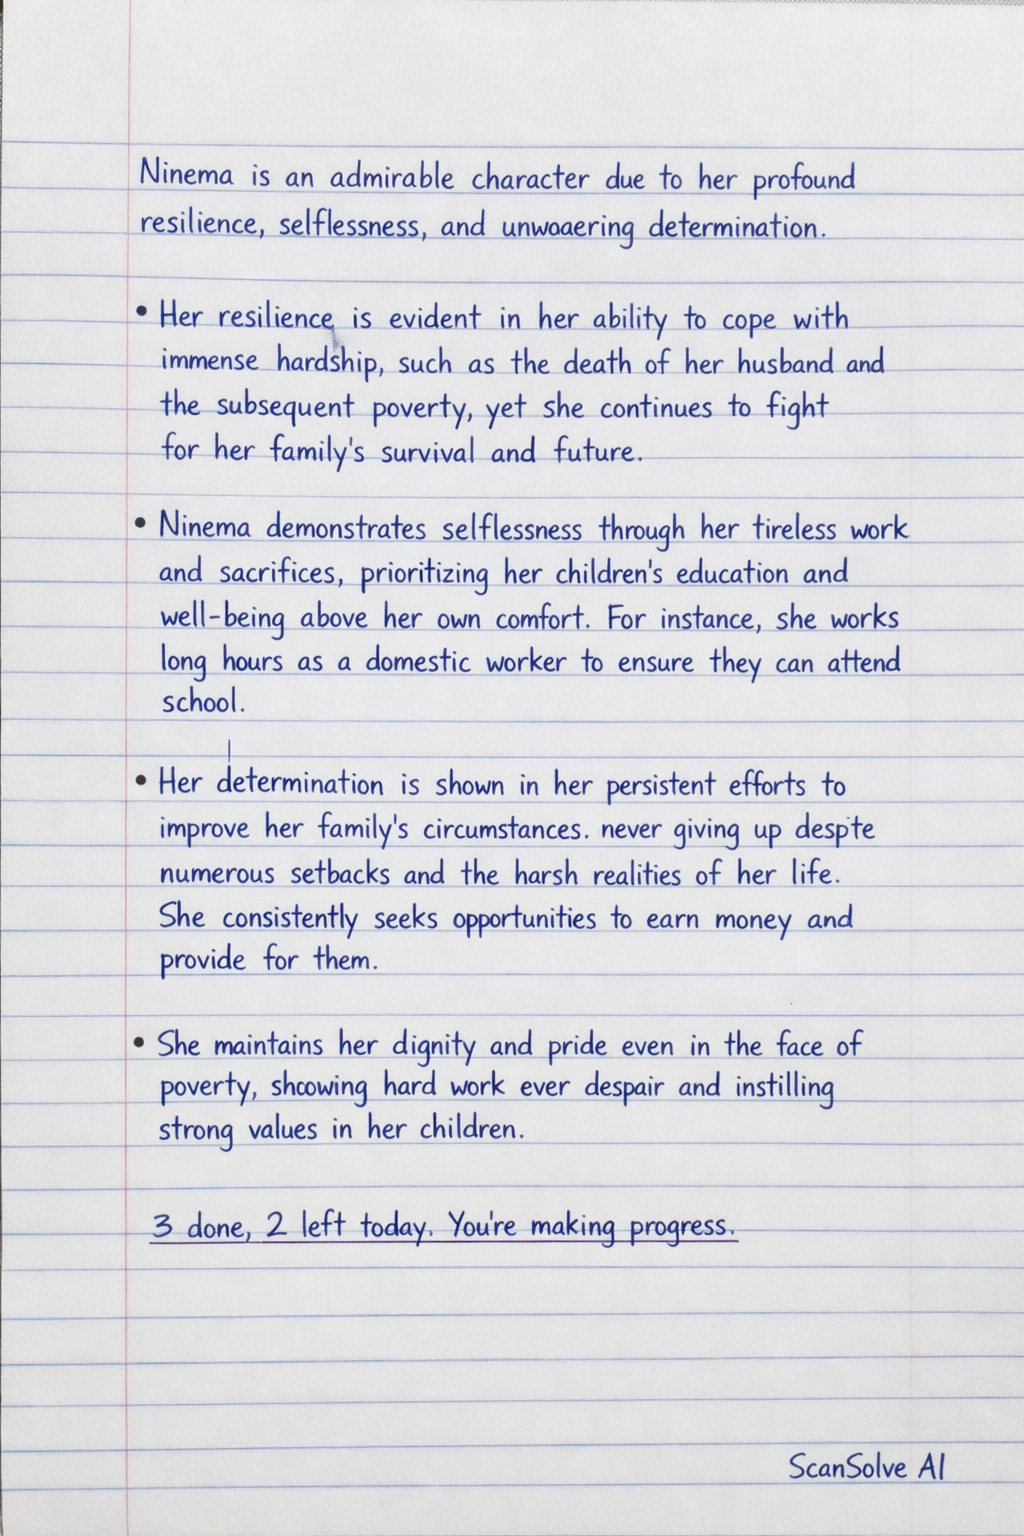 Ninema is an admirable character due to her profound
resilience, selflessness, and unwoaering determination.
• Her resilience is evident in her ability to cope with
immense hardship, such as the death of her husband and
the subsequent poverty, yet she continues to fight
for her family's survival and future.
• Ninema demonstrates selflessness through her tireless work
and sacrifices, prioritizing her children's education and
well-being above her own comfort. For instance, she works
long hours as a domestic worker to ensure they can attend
school.
• Her determination is shown in her persistent efforts to
improve her family's circumstances. never giving up despte
numerous setbacks and the harsh realities of her life.
She consistently seeks opportunities to earn money and
provide for them.
• She maintains her dignity and pride even in the face of
poverty, shoowing hard work ever despair and instilling
strong values in her children.
3 done, 2 left today. You're making progress.
ScanSolve AI